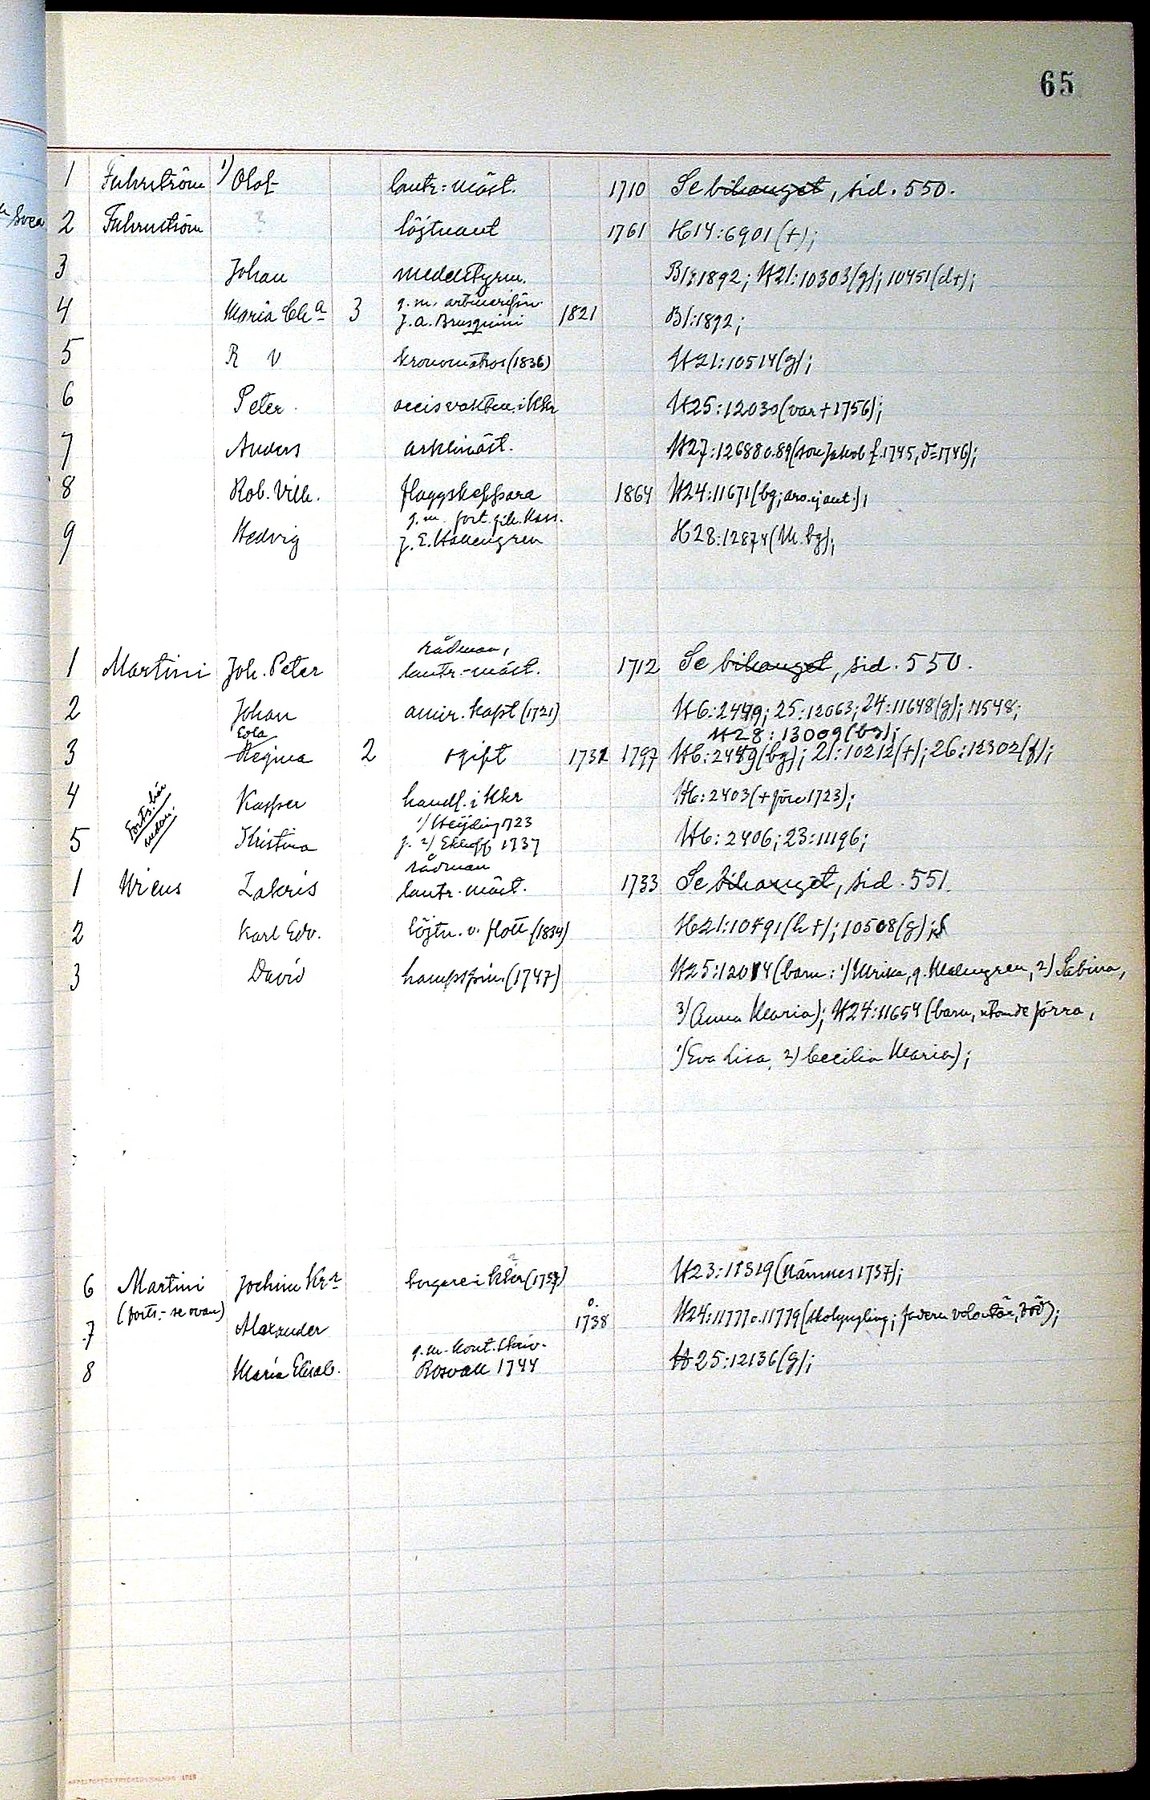 65
1 Fuhrström 1) Olof lautr.-mäst. 1710 Se bihanget, sid. 550.
2 Fuhrnström ? löjtnant 1761 H14:6901(+);
3 Johan medelstyrm. B1:1892; H21:10303(g); 10451(d+);
g.m.
4 Maria Ch:a 3 J.A. Brusquini 1821 B1:1892;
5 R V kronomåtros (1836) H21:10514(g);
6 Peter. accisvaktm. i Kkr H25:12030(var +1756);
7 Anders arklimäst. H27:12688 o. 89(son Jakob f. 1745, d=1746);
8 Rob. Vilh. flaggskeppare 1864 H24:11671(bg; ant.);
g.m. fort.
9 Hedvig J.E. Hallengren H28:12874(bg);
rådman,
1 Martini Joh. Peter lautr.-mäst. 1712 Se bihanget, sid. 550.
2 Johan amir. kapt (1721) H6:2449; 25:12063; 24:11648(g); 11548;
Eva H28:13009(bg);
3 Regina 2 ogift 1731 1797 H6:2449(bg); 21:10212(+); 26:12302(f);
4 Forts. här nedan; Kasper handl. i Kkr H6:2403(+före 1723);
1) 1723
5 Kristina g. 2) Ekhoff 1737 H6:2406; 23:11196;
rådman
1 Ur​cus Zakris lautr.-mäst. 1733 Se bihanget, sid. 551.
2 Karl Edv. löjtn. v. flott. (1834) H21:10491(h+); 10508(g);
3 David hampspin. (1747) H25:12014(barn: 1) Ulrika, g. Malmgren, 2) Sabina,
3) Anna Maria); H24:11654(barn, utom de förra,
1) Eva Lisa, 2) Cecilia Maria);
6 Martini Jochim Kr:r borgare i Kkr (1737) H23:11319(nämnes 1737);
(forts.- se ovan)
7 Alexander o. 1738 H24:11777 o. 11779(skolyngling; fadern volontär, död);
g.m. kont. skriv.
8 Maria Elisab. Rosvall 1744 H25:12136(g);